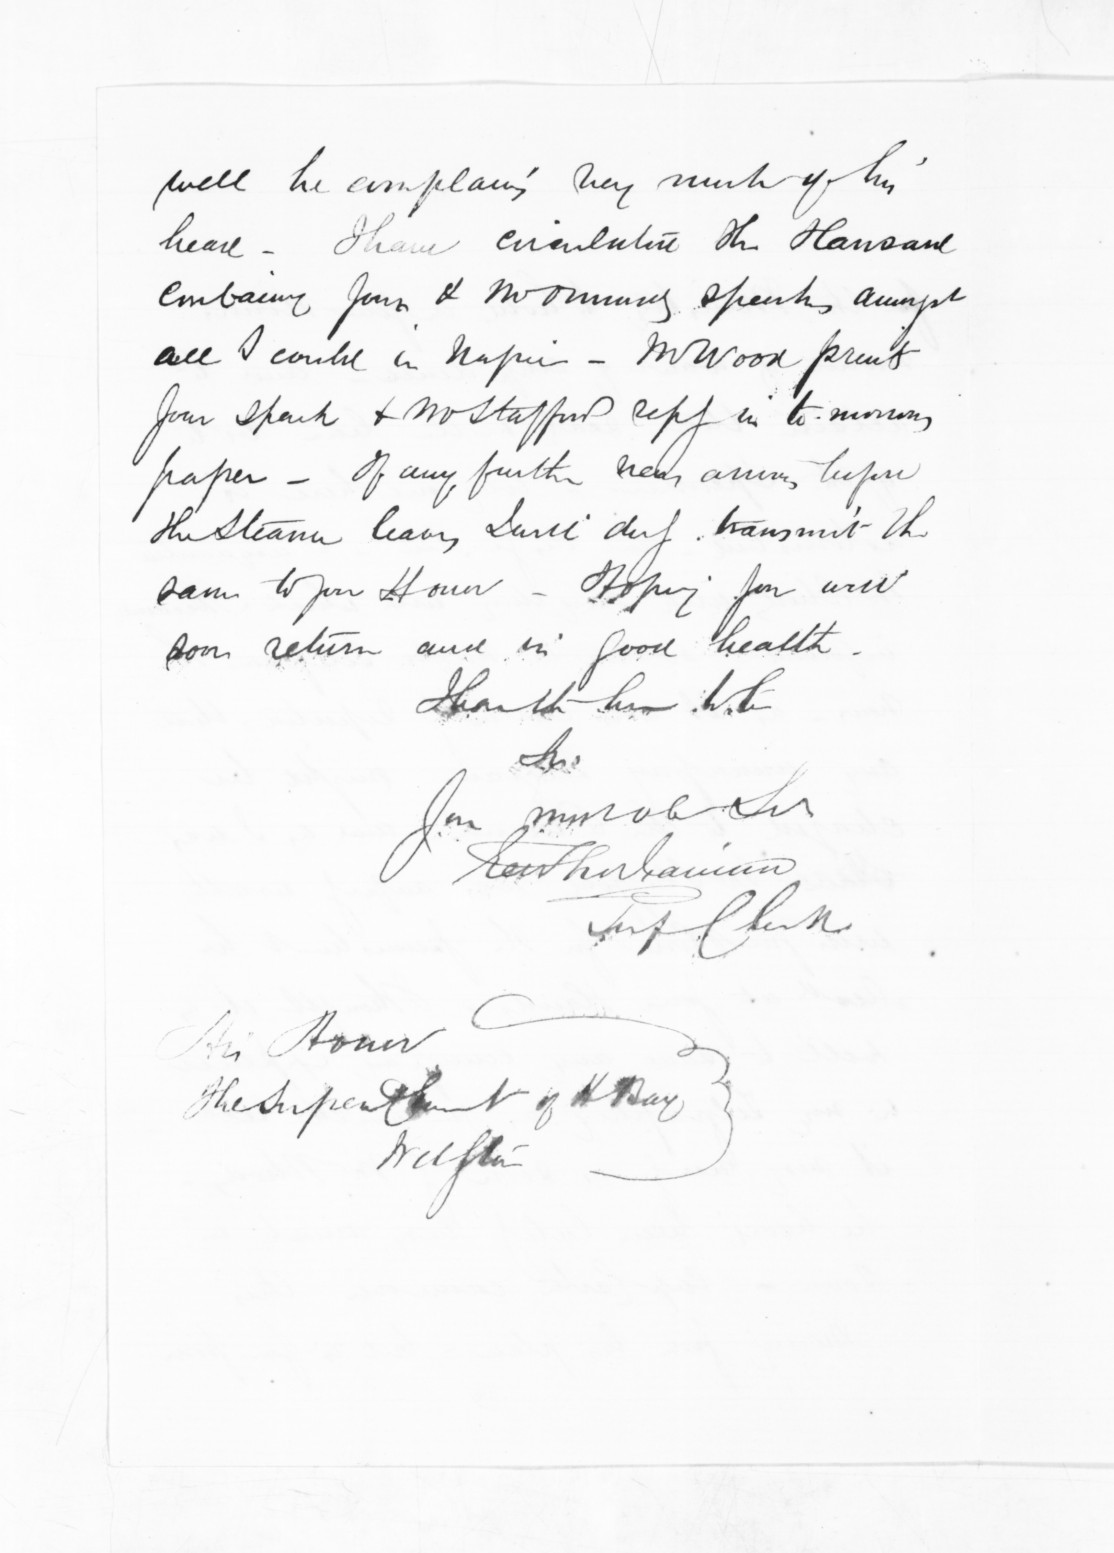 well he complains very much of his
head - I have circulated the Hansard
containing your & Mr Ormonds speeches amongst
all I could in Napier - Mr Wood prints
your speech & Mr Stafford reply in to-morrows
paper - If any further news arrives before
the Steamer leaves I will duly transmit the
same to your Honor - Hoping you will
soon return and in good health -
I have the honor to be
Sir
Your most obt Svt
Supt Clerk
His Honor
The Superintendent of H Bay
Wellgton